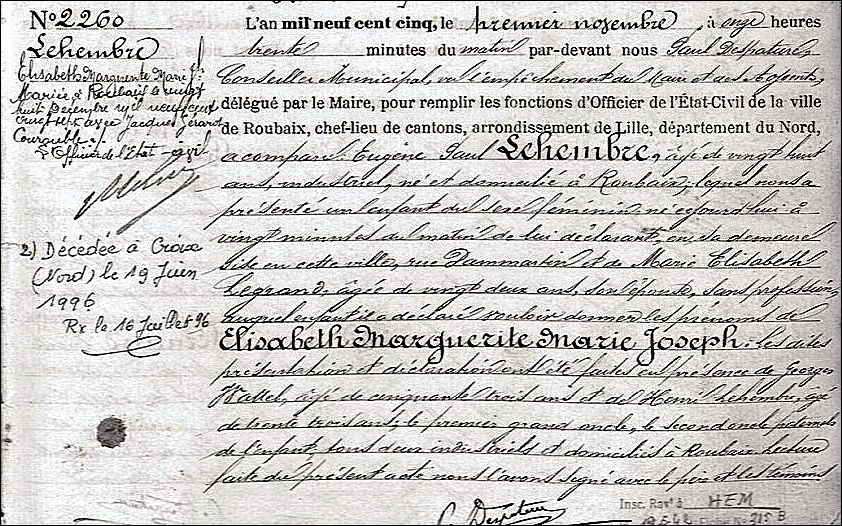 No 2260
Lehembre
Elisabeth Marguerite Marie J.
Mariée à Roubaix le vingt
huit Décembre mil neuf cent
vingt sept avec Jacques Gérard
Courouble ./.
L'Officier de l'Etat-civil
2) Décédée à Croix
(Nord) le 19 Juin
1996
Rx le 16 Juillet 96
L'an mil neuf cent cinq, le premier novembre, à onze heures
trente minutes du matin par-devant nous Paul Despature,
Conseiller Municipal, vu l'empêchement du Maire et des Adjoints,
délégué par le Maire, pour remplir les fonctions d'Officier de l'État-Civil de la ville
de Roubaix, chef-lieu de cantons, arrondissement de Lille, département du Nord,
a comparu: Eugène Paul Lehembre, âgé de vingt huit
ans, industriel, né et domicilié à Roubaix; lequel nous a
présenté un enfant du sexe féminin né cejourd'hui à
vingt minutes du matin de lui déclarant, en sa demeure
sise en cette ville, rue Dammartin et de Marie Elisabeth
Legrand, âgée de vingt deux ans, son épouse, sans profession,
auquel enfant il a déclaré vouloir donner les prénoms de
Elisabeth Marguerite Marie Joseph. Les dites
présentation et déclaration ont été faites en présence de Georges
Wattel, âgé de cinquante trois ans et de Henri Lehembre, âgé
de trente trois ans; le premier grand oncle, le second oncle paternels
de l'enfant, tous deux industriels et domiciliés à Roubaix. Lecture
faite du présent acte nous l'avons signé avec le père et les témoins
Despature
Insc. Rav<sup>t</sup> à HEM
215 B